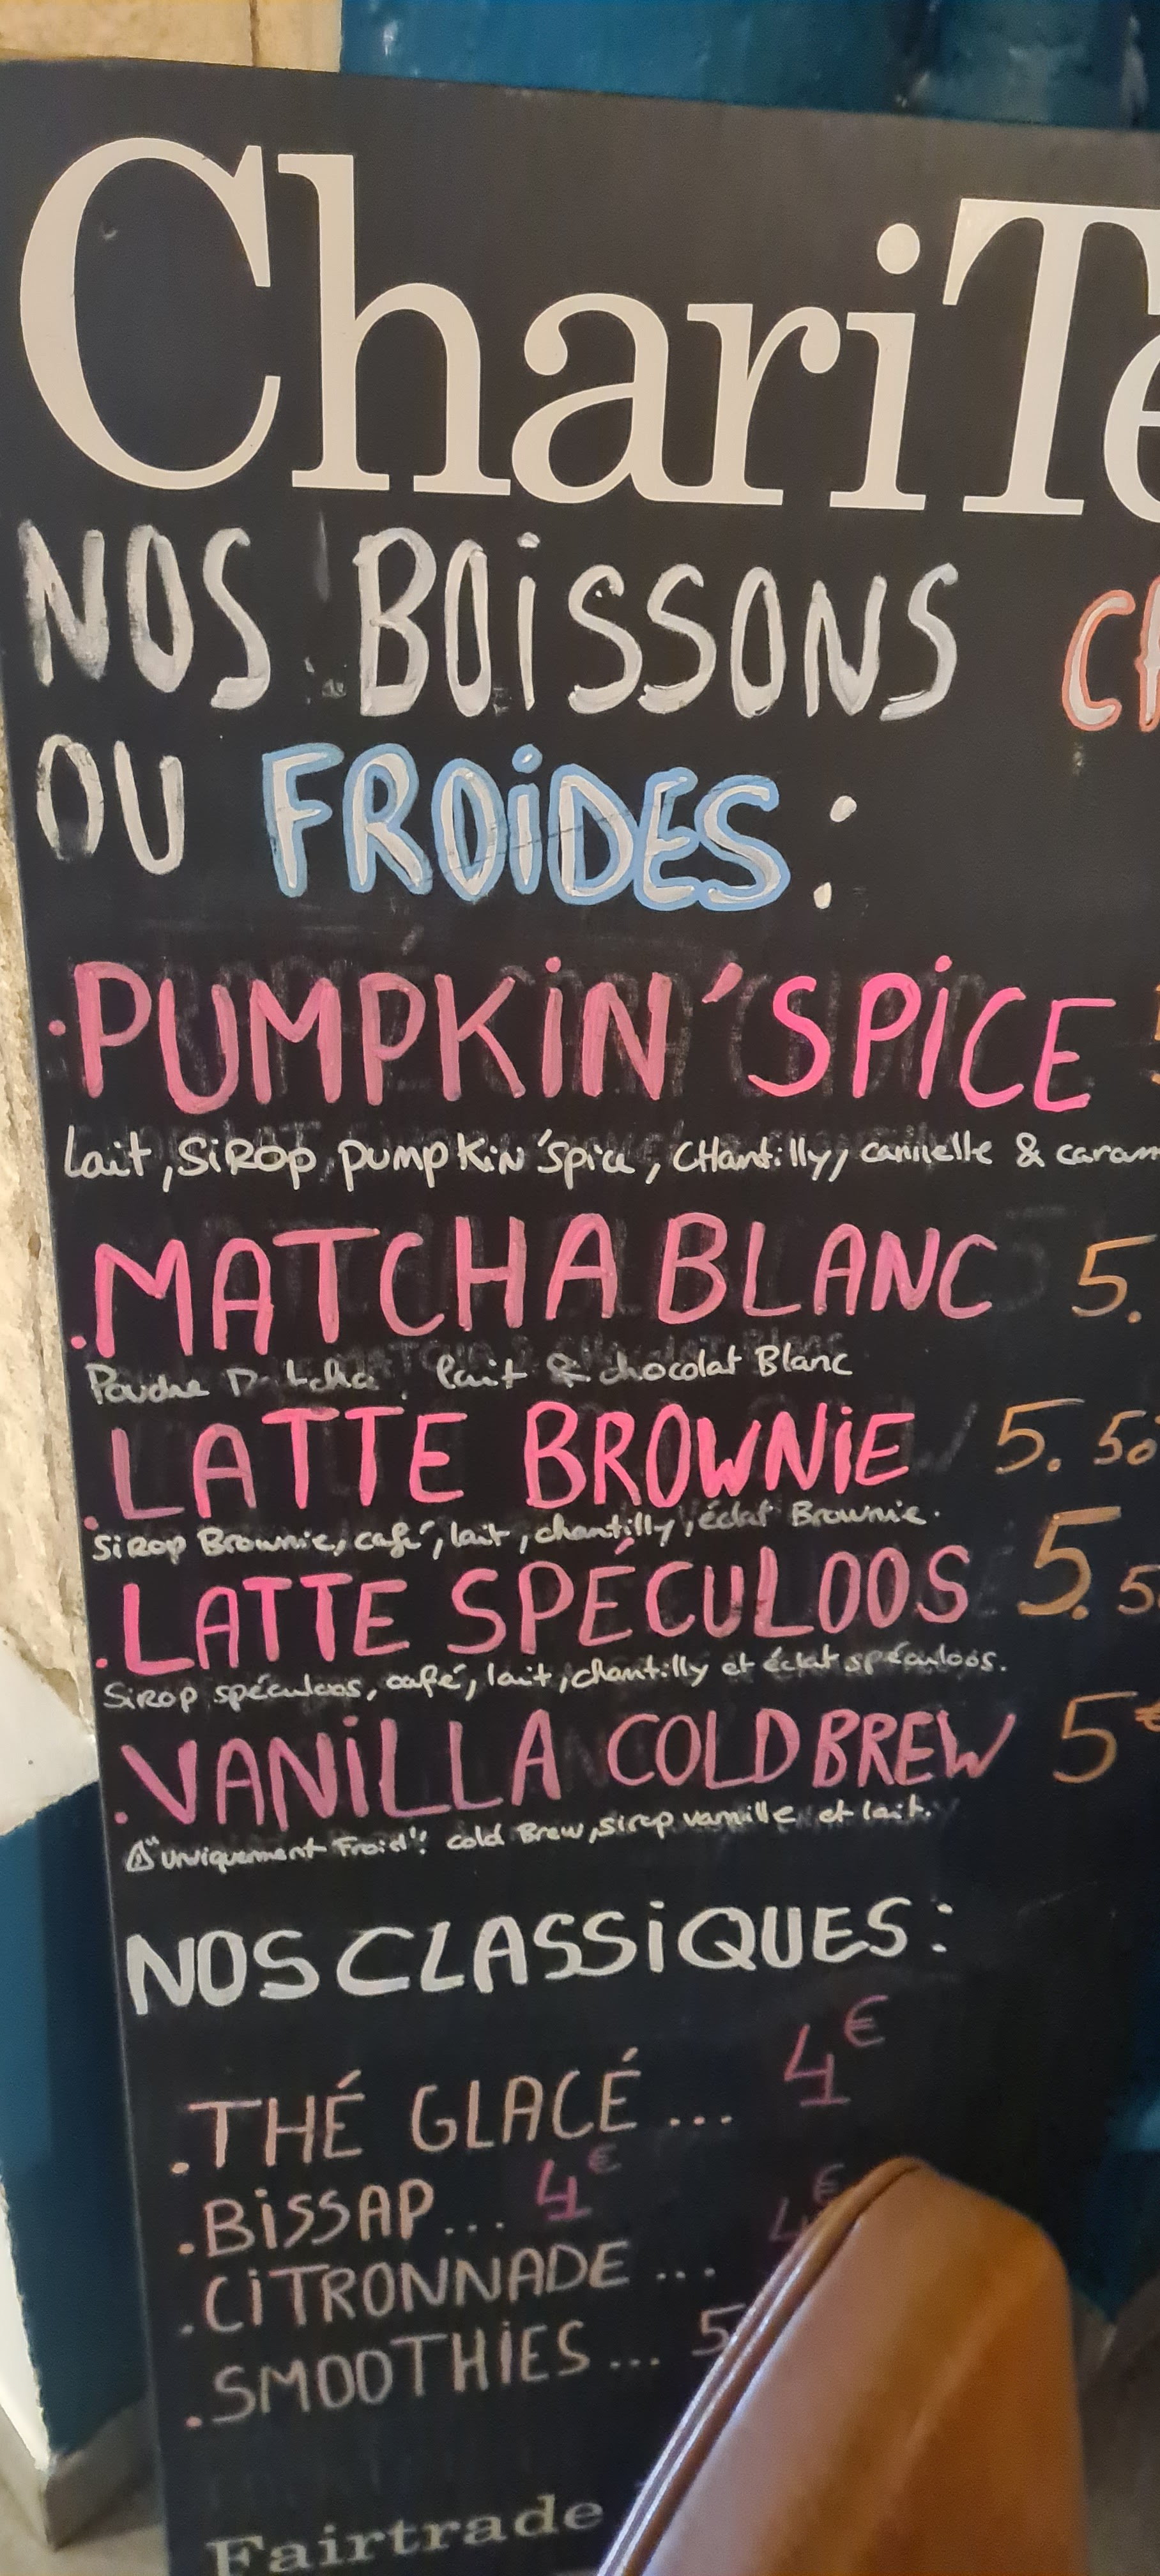 ChariTe
NOS BOISSONS CH
OU FROIDES :
. PUMPKIN'SPICE
Lait, SiROP pumpkin'Spice, CHantilly, cannelle & caram
. MATCHA BLANC 5.
Poudre Matcha, lait & chocolat Blanc
. LATTE BROWNIE 5.50
SiRop Brownie, café, lait, chantilly, éclat Brownie.
. LATTE SPÉCULOOS 5.5
SiRop spéculoos, café, lait, chantilly et éclat spéculoos.
. VANILLA COLD BREW 5€
⚠"Uniquement Froid"! cold Brew, sirop vanille et lait.
NOS CLASSIQUES :
. THÉ GLACÉ ... 4€
. BISSAP... 4€
. CITRONNADE ... 4€
. SMOOTHIES ... 5
Fairtrade